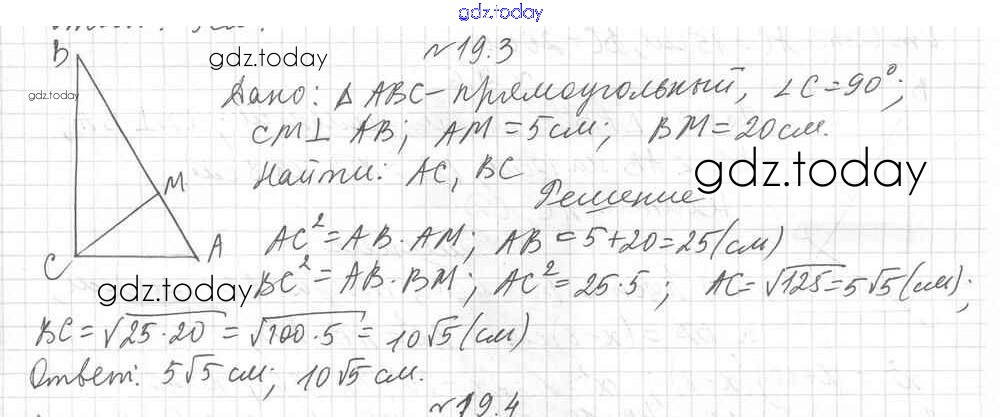 gdz.today
№19.3
B
gdz.today
gdz.today
Дано: Δ ABC - прямоугольный, ∠C = 90°;
CM ⊥ AB; AM = 5 см; BM = 20 см.
Найти: AC, BC
gdz.today
M
Решение
AC² = AB · AM; AB = 5 + 20 = 25 (см)
C
A
gdz.today
BC² = AB · BM; AC² = 25 · 5; AC = √125 = 5√5 (см);
BC = √25 · 20 = √100 · 5 = 10√5 (см)
Ответ: 5√5 см; 10√5 см.
№19.4